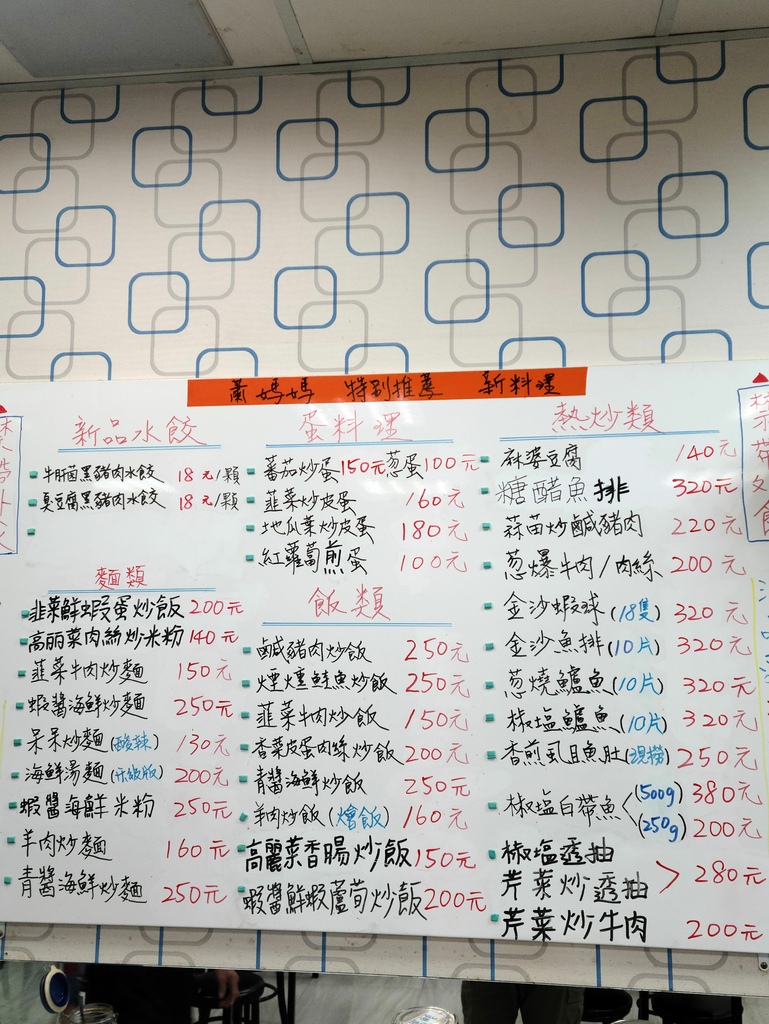 蕭媽媽 特別推薦 新料理
新品水餃
牛肝菌黑豬肉水餃 18元/顆
臭豆腐黑豬肉水餃 18元/顆
麵類
韭菜鮮蝦蛋炒飯 200元
高丽菜肉絲炒米粉 140元
韭菜牛肉炒麵 150元
蝦醬海鮮炒麵 250元
呆呆炒麵(酸辣) 130元
海鮮湯麵(升級版) 200元
蝦醬海鮮米粉 250元
羊肉炒麵 160元
青醬海鮮炒麵 250元
蛋料理
蕃茄炒蛋150元 葱蛋100元
韭菜炒皮蛋 160元
地瓜葉炒皮蛋 180元
紅蘿蔔煎蛋 100元
飯類
鹹豬肉炒飯 250元
煙燻鮭魚炒飯 250元
韭菜牛肉炒飯 150元
香菜皮蛋肉絲炒飯 200元
青醬海鮮炒飯 250元
羊肉炒飯(燴飯) 160元
高麗菜香腸炒飯 150元
蝦醬鮮蝦蘆筍炒飯 200元
熱炒類
麻婆豆腐 140元
糖醋魚排 320元
蒜苗炒鹹豬肉 220元
葱爆牛肉/肉絲 200元
金沙蝦球(18隻) 320元
金沙魚排(10片) 320元
葱燒鱸魚(10片) 320元
椒塩鱸魚(10片) 320元
香煎虱目魚肚(現撈) 250元
椒塩白帶魚 (500g) 380元
(250g) 200元
椒塩透抽
芹菜炒透抽 > 280元
芹菜炒牛肉 200元
禁帶外食